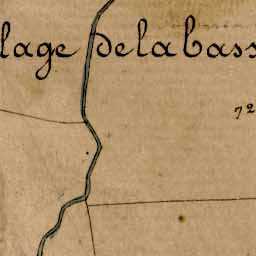 lage de la bass
72